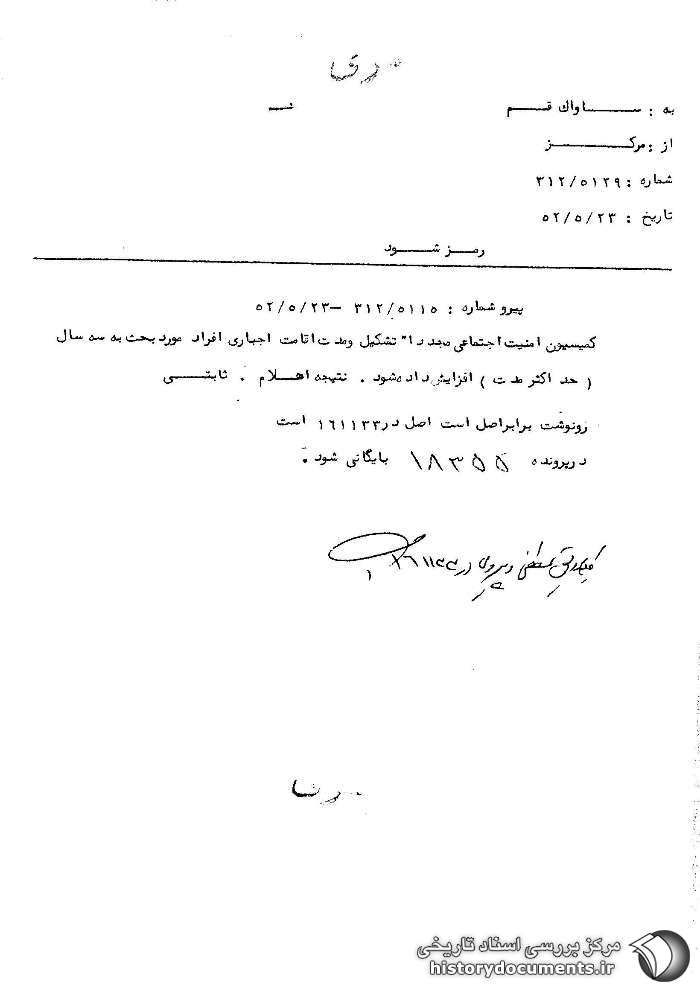 به : ساواک قم
از : مرکز
شماره : ۳۱۲/۵۱۲۹
تاریخ : ۵۲/۵/۲۳
رمز شود
پیرو شماره : ۳۱۲/۵۱۱۵ – ۵۲/۵/۲۳
کمیسیون امنیت اجتماعی مجددا" تشکیل ومدت اقامت اجباری افراد مورد بحث به سه سال
( حد اکثر مدت ) افزایش داده شود . نتیجه اعلام . ثابتی
رونوشت برابر اصل است اصل در ۱۶۱۱۳۳ است
در پرونده ۱۸۳۵۵ بایگانی شود .
در
مرکز بررسی اسناد تاریخی
historydocuments.ir